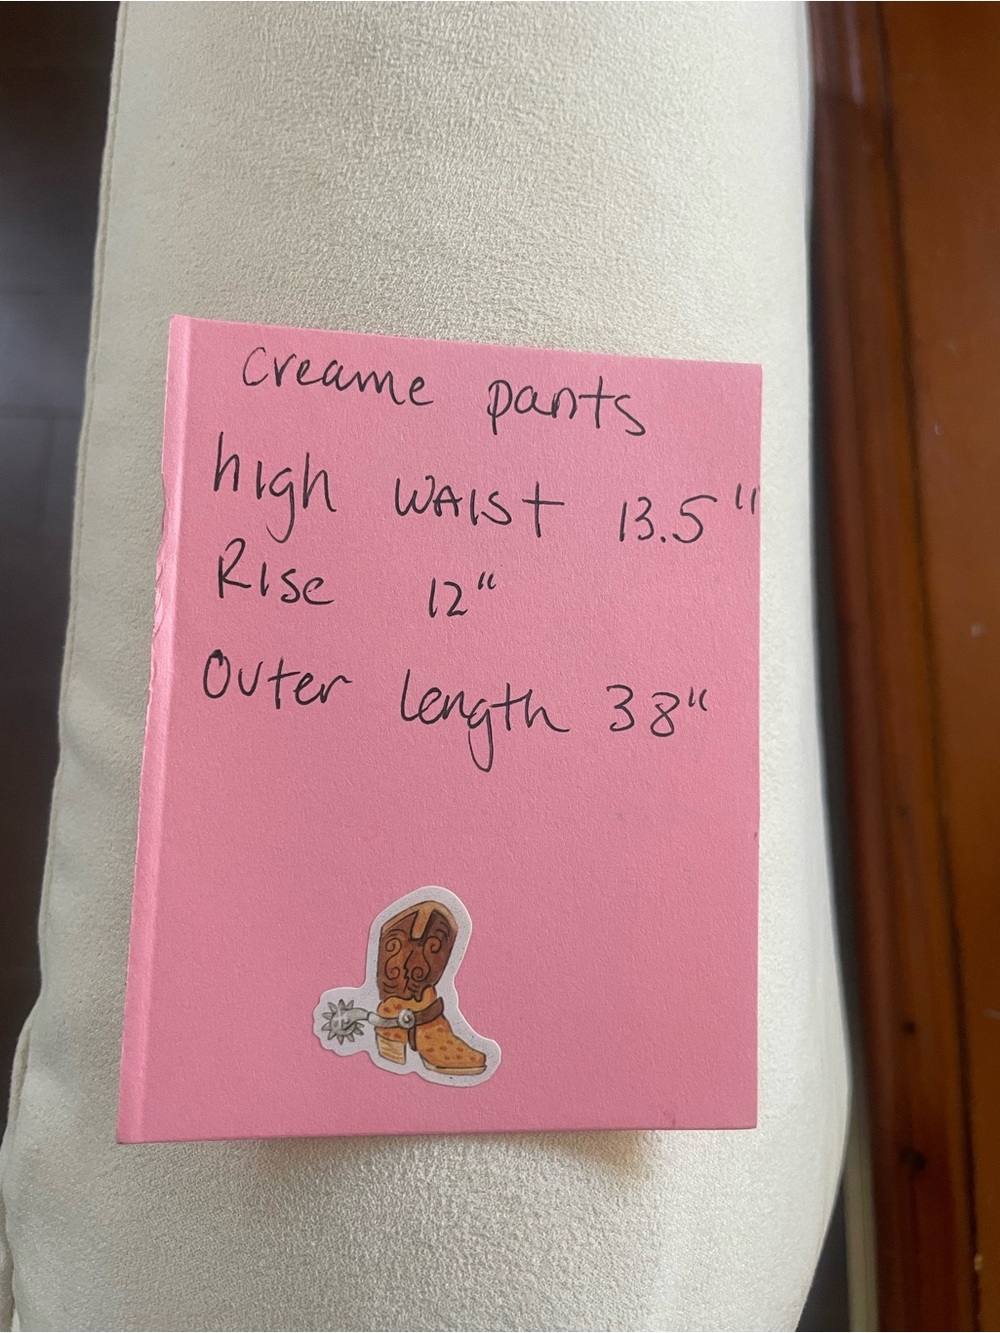 creame pants
high WAIST 13.5"
Rise 12"
Outer length 38"